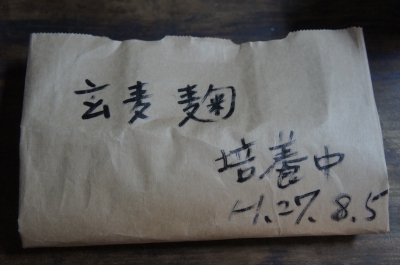 玄麦麹
培養中
H.27.8.5